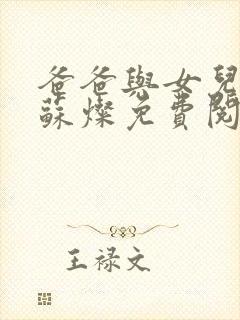 爸爸與女兒
蘇燦免費閱
王禄文